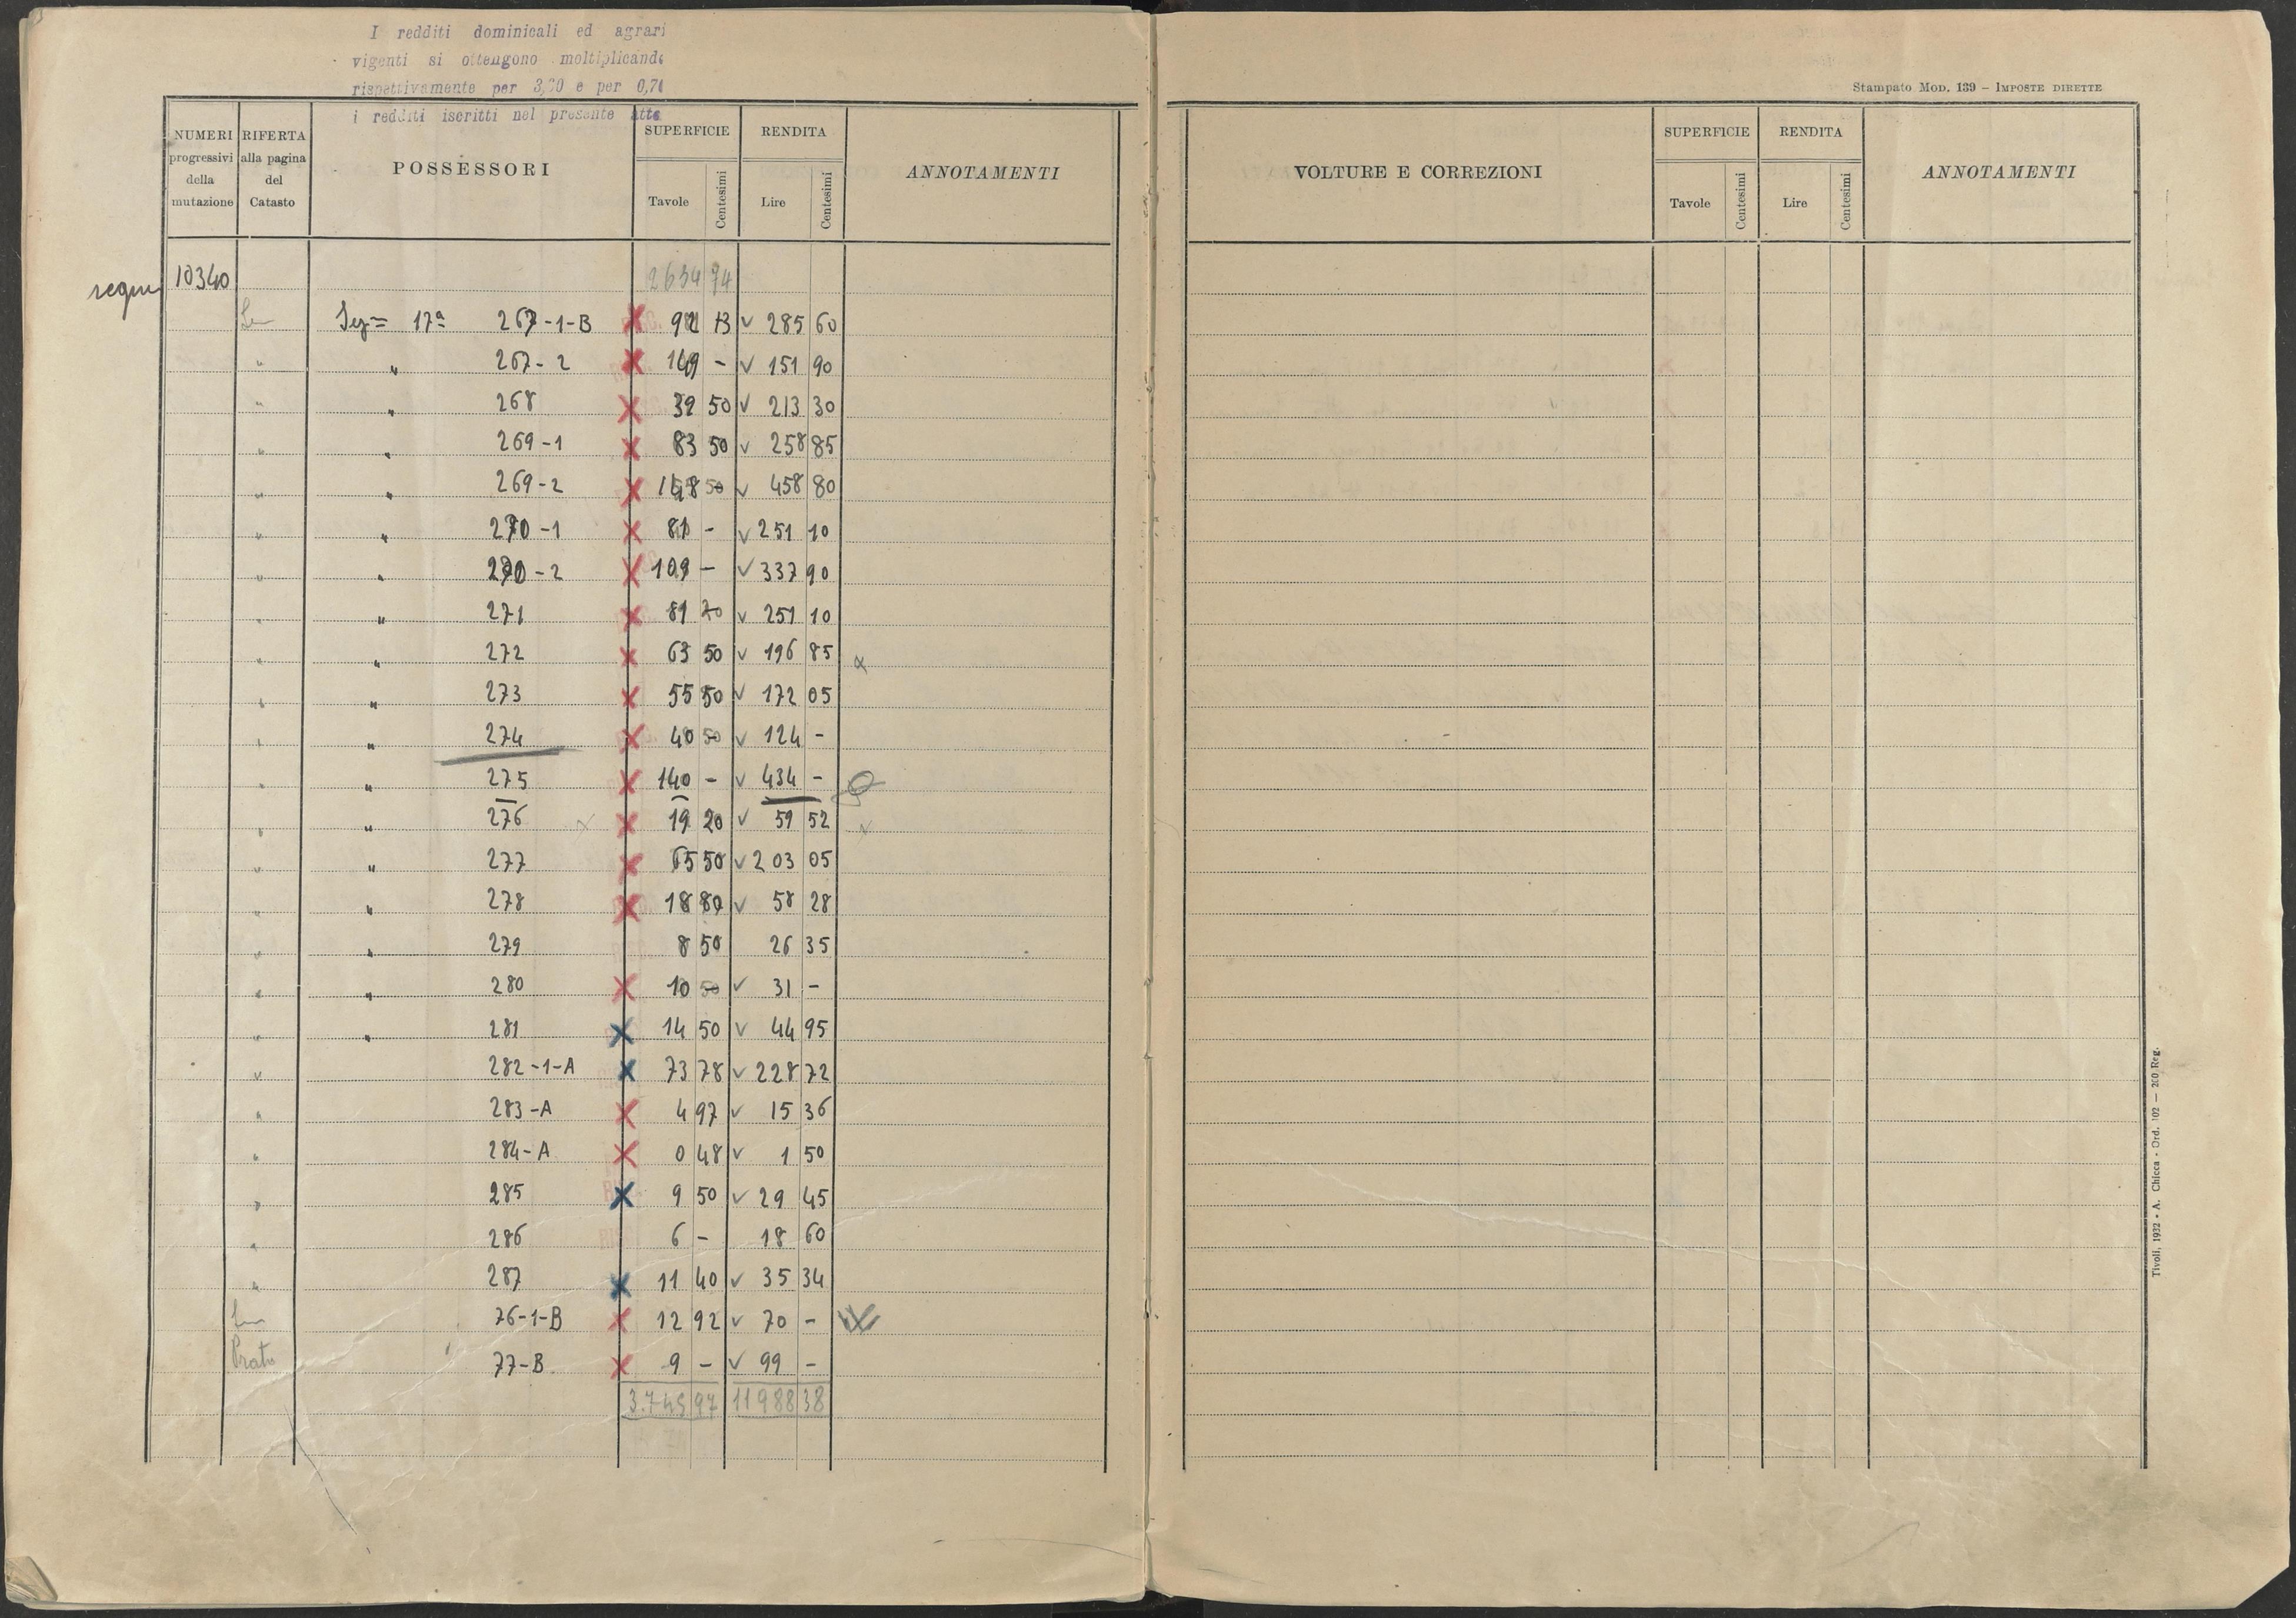 I redditi dominicali ed agrari
vigenti si ottengono moltiplicando
rispettivamente per 3,20 e per 0,70
i redditi iscritti nel presente atto
NUMERI progressivi della mutazione
RIFERTA alla pagina del Catasto
POSSESSORI
SUPERFICIE
Tavole Centesimi
RENDITA
Lire Centesimi
ANNOTAMENTI
segue 10340 2634 74
Sez= 17ª 267-1-B 92 13 v 285 60
" " 267-2 149 - v 151 90
" " 268 39 50 v 213 30
" " 269-1 83 50 v 258 85
" " 269-2 148 50 v 458 80
" " 270-1 81 - v 251 10
" " 270-2 109 - v 337 90
" " 271 81 20 v 251 10
" " 272 63 50 v 196 85
" " 273 55 50 v 172 05
" " 274 40 50 v 124 -
" " 275 140 - v 434 -
" " 276 19 20 v 59 52
" " 277 65 50 v 203 05
" " 278 18 80 v 58 28
" " 279 8 50 26 35
" " 280 10 50 v 31 -
" " 281 14 50 v 44 95
" 282-1-A 73 78 v 228 72
" 283-A 4 97 v 15 36
" 284-A 0 48 v 1 50
" 285 9 50 v 29 45
" 286 6 - 18 60
" 287 11 40 v 35 34
76-1-B 12 92 v 70 -
Prato 77-B 9 - v 99 -
3.745 97 11988 38
Stampato Mod. 139 – Imposte dirette
VOLTURE E CORREZIONI
SUPERFICIE
Tavole Centesimi
RENDITA
Lire Centesimi
ANNOTAMENTI
Tivoli, 1932 • A. Chicca - Ord. 102 — 200 Reg.